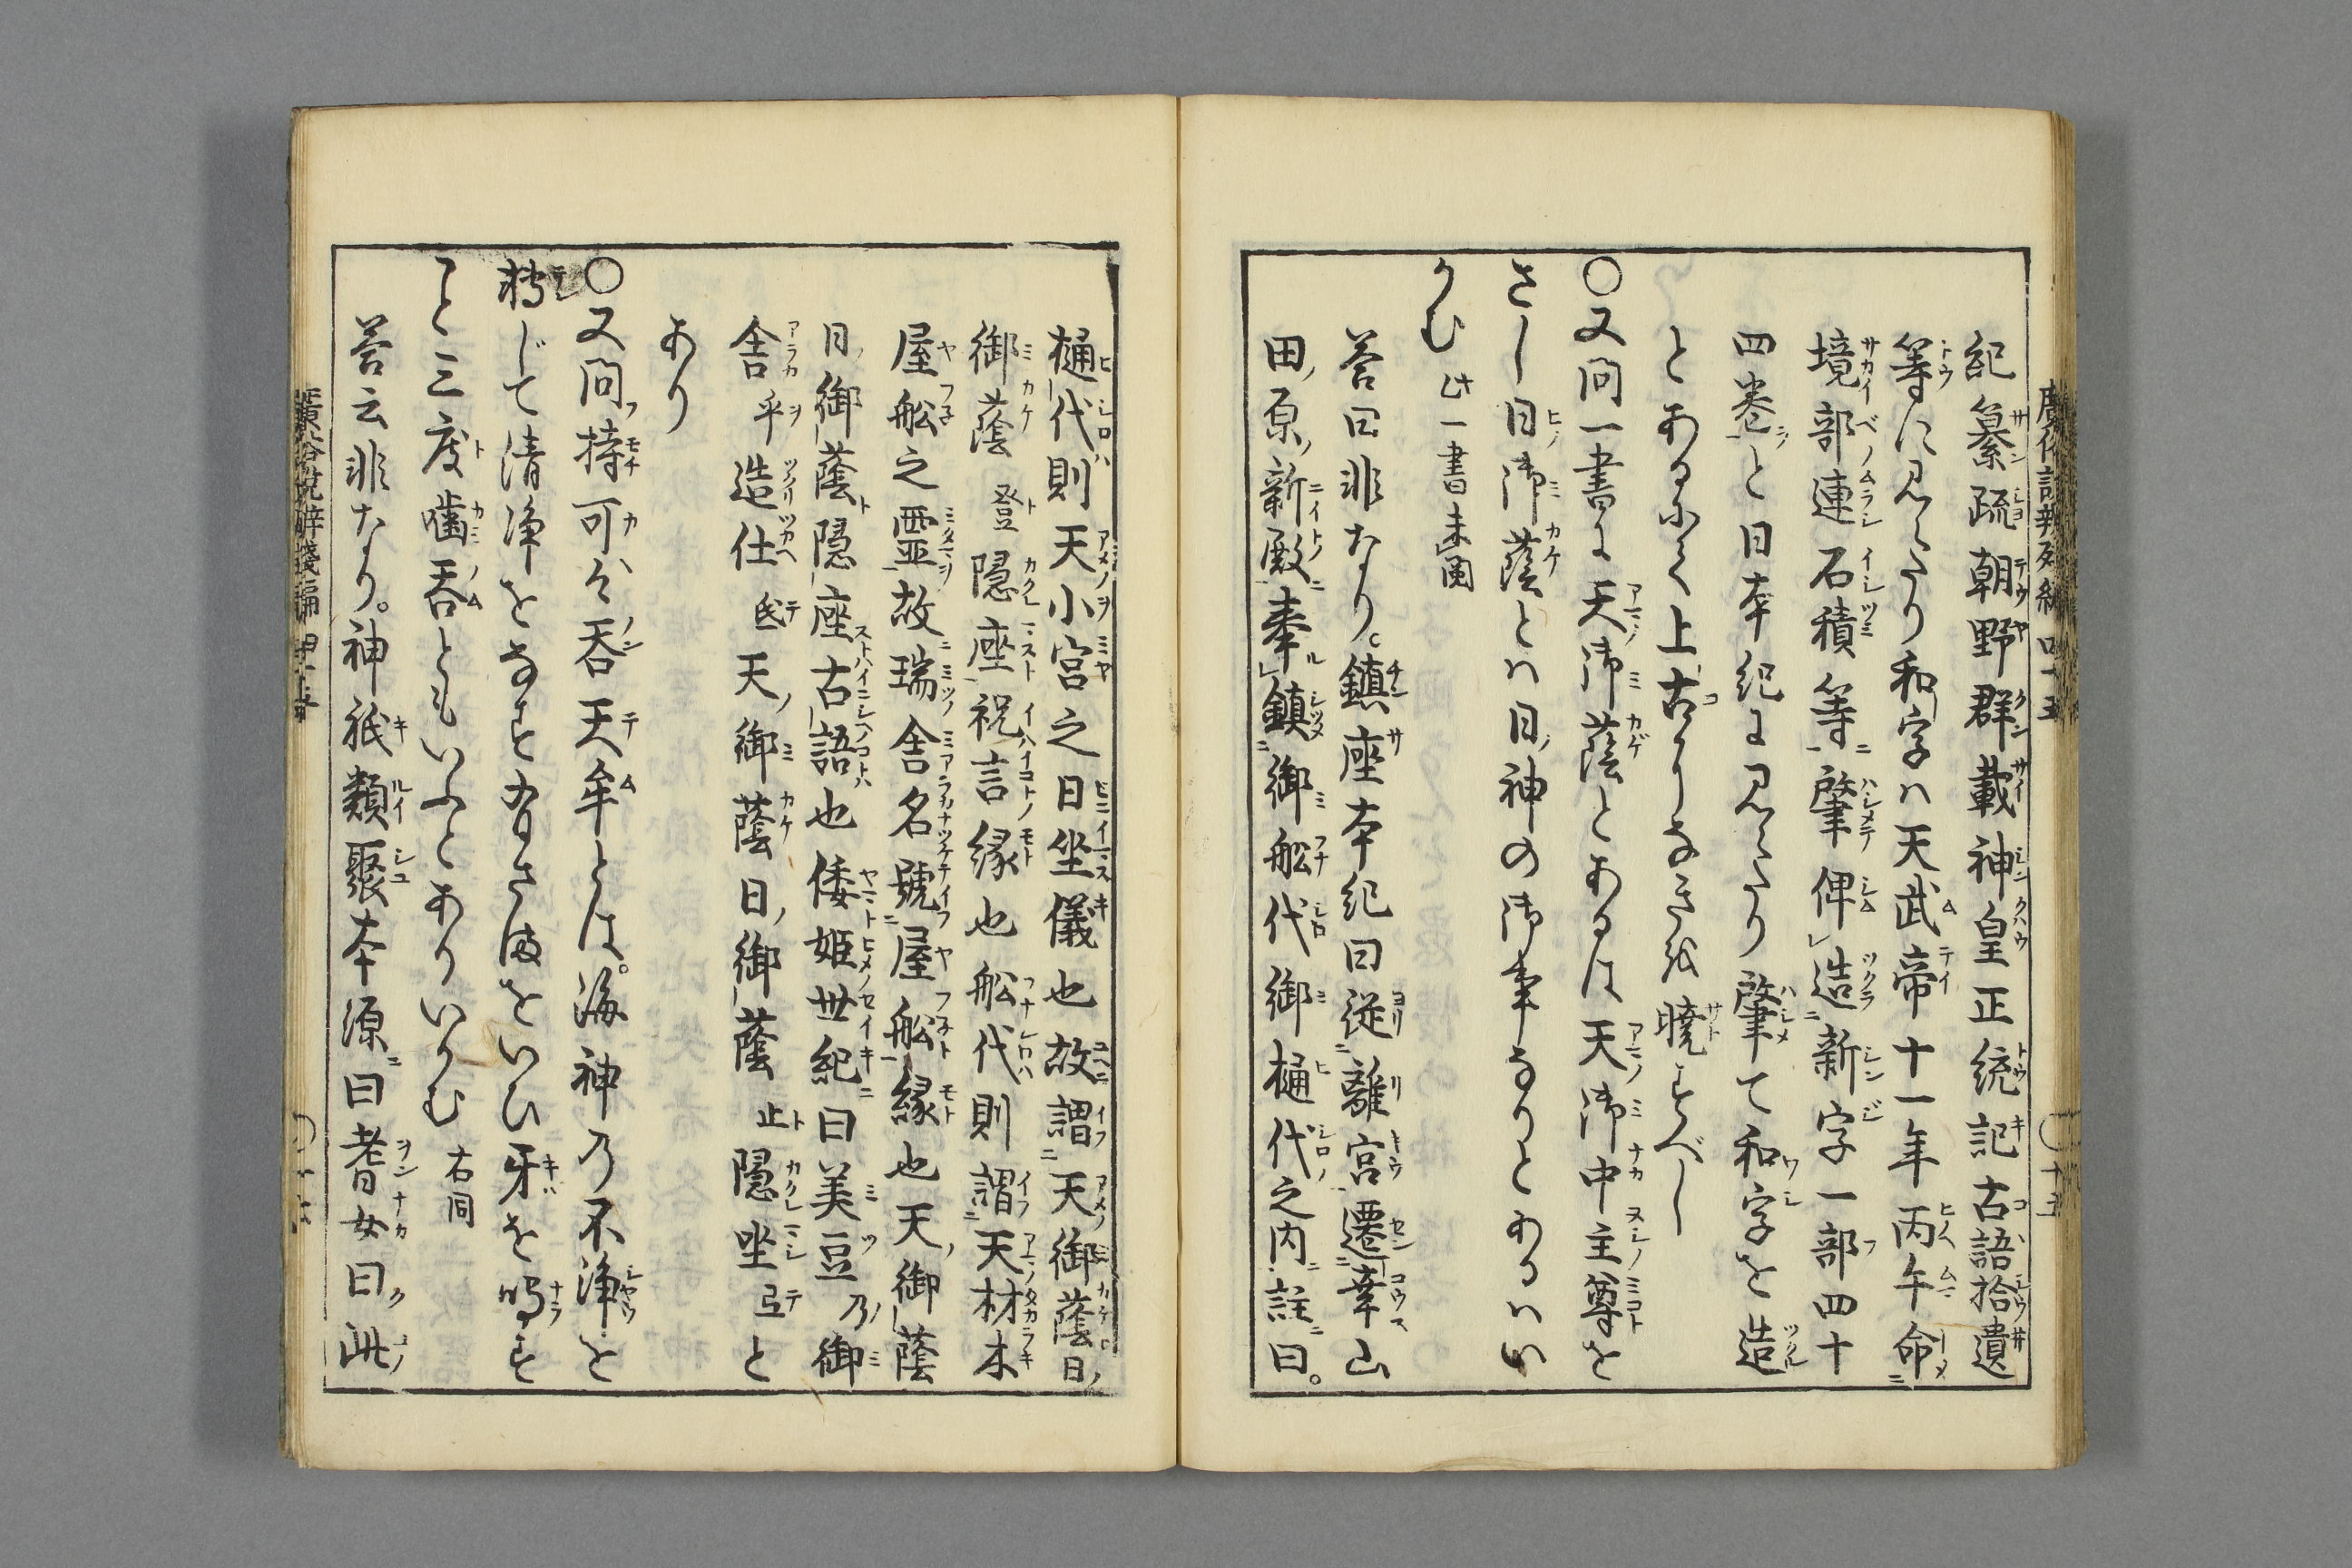 紀纂疏朝野群載神皇正統記古語拾遺
等に見えたり和字ハ天武帝十一年丙午命
境部連石積等肇俾造新字一部四十
四巻と日本紀に見えたり肇て和字を造
とあるふく上古になき𪜈暁すべし
〇又問一書に天御蔭とあるは天御中主尊を
さし日御蔭とハ日神の御事なりとあるハい
かむ 此一書未聞
答曰非なり。鎮座本紀曰従離宮遷幸山
田原新殿奉鎮御船代御樋代之内註曰。
樋代則天小宮之日坐儀也故謂天御蔭日
御蔭登隠座祝言縁也船代則謂天材木
屋船之霊故瑞舎名號屋船縁也天御蔭
日御蔭隠座古語也倭姫世紀曰美豆乃御
舎乎造仕氐天御蔭日御蔭止隠坐弖と
あり
〇又問持可公呑天牟とは。海神乃不浄を
轉じて清浄をなす有さまをいひ牙を鳴す
こと三度噛呑ともいふとありいかむ 右同
答云非なり。神祇類聚本源曰耆女曰此
廣俗説辨残編 四十五
〇十五